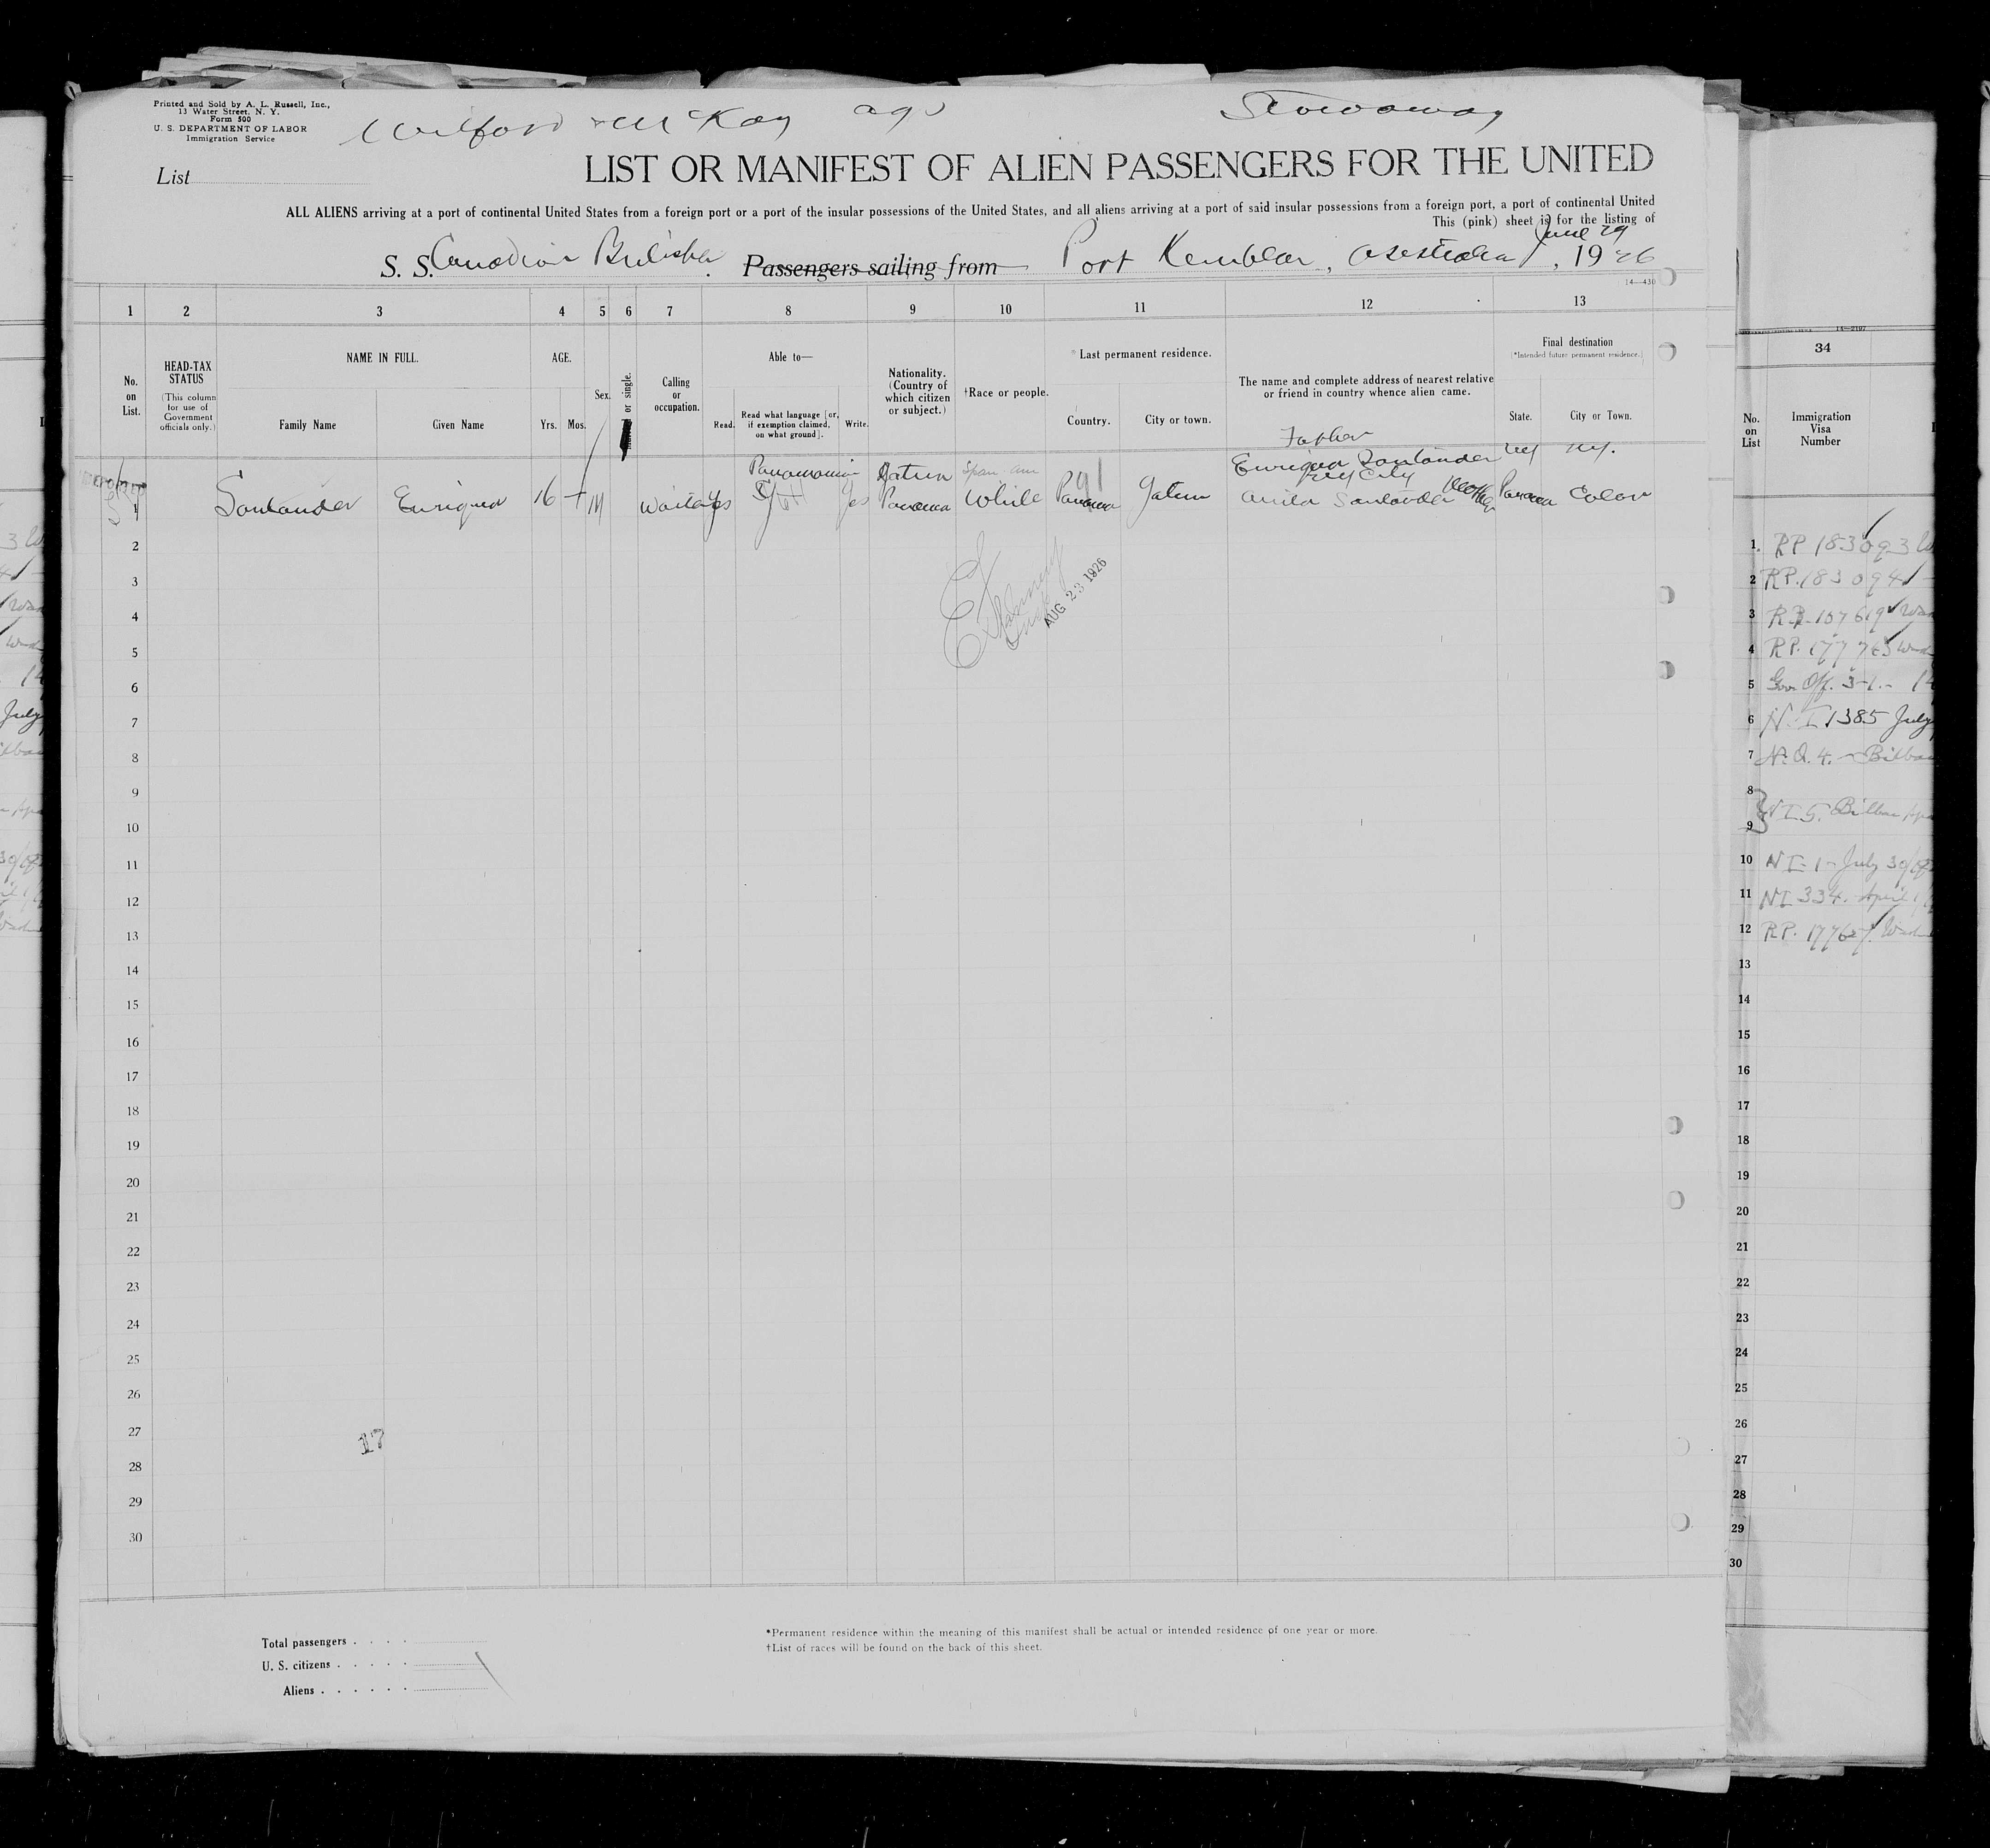 Printed and Sold by A. L. Russell, Inc.,
13 Water Street, N. Y.
Form 500
U. S. DEPARTMENT OF LABOR
Immigration Service
McKay ago Stowaway
List
LIST OR MANIFEST OF ALIEN PASSENGERS FOR THE UNITED
ALL ALIENS arriving at a port of continental United States from a foreign port or a port of the insular possessions of the United States, and all aliens arriving at a port of said insular possessions from a foreign port, a port of continental United
This (pink) sheet is for the listing of
June 29
S. S. Canadian Passengers sailing from Port Kemblar, , 1926
14—430
1 2 3 4 5 6 7 8 9 10 11 12 13
No. on List.
HEAD-TAX STATUS
(This column for use of Government officials only.)
NAME IN FULL.
Family Name
Given Name
AGE.
Yrs.
Mos.
Sex.
or single.
Calling or occupation.
Able to—
Read.
Read what language [or, if exemption claimed, on what ground].
Write.
Nationality. (Country of which citizen or subject.)
†Race or people.
Last permanent residence.
Country.
City or town.
The name and complete address of nearest relative or friend in country whence alien came.
Final destination
(*Intended future permanent residence.)
State.
City or Town.
Father
Panamanian Gatun Span-am Enrique Santander NY NY.
NY City
1 Santander Enrique 16 M yes yes Panama White Panama Gatun Santander Mother Panama Colon
2
3
4
5
6
7
8
9
10
11
12
13
14
15
16
17
18
19
20
21
22
23
24
25
26
27
28
29
30
AUG 23 1926
17
Total passengers
U. S. citizens
Aliens
*Permanent residence within the meaning of this manifest shall be actual or intended residence of one year or more.
†List of races will be found on the back of this sheet.
14—2197
34
No. on List
Immigration Visa Number
1. RP 183093
2 RP. 183094
3 RP. 107619
4 RP. 177763
5 Gov. Off. 3-1.-
6 N. I 1385 July
7 N. Q. 4. - Bilbao
8
9 NI 5. Bilbao
10 NI-1- July 30
11 NI 334. April
12 RP. 177627.
13
14
15
16
17
18
19
20
21
22
23
24
25
26
27
28
29
30